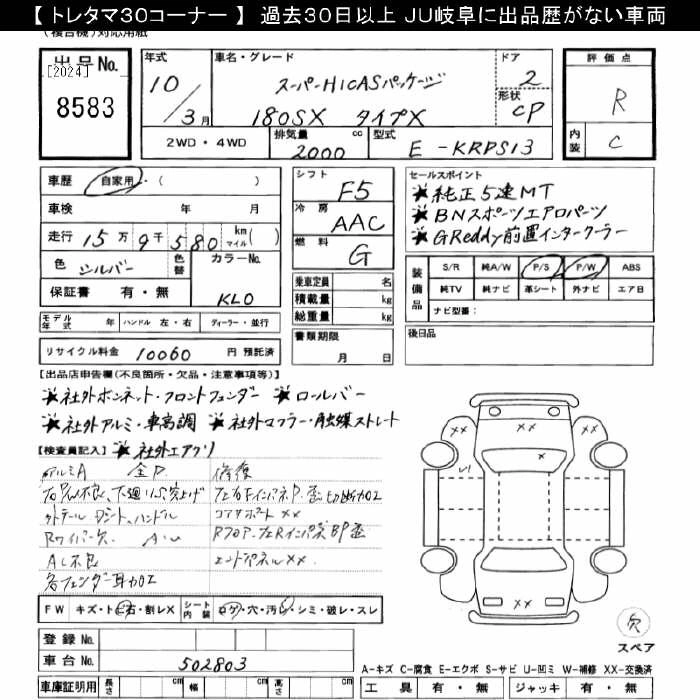 【 トレタマ30コーナー 】 過去30日以上 JU岐阜に出品歴がない車両
(複合機)対応用紙
出品No.
[2024]
8583
年式
10/3月
車名・グレード
スーパーHICASパッケージ
180SX タイプX
ドア
2
形状
CP
評価点
R
内装
C
2WD・4WD
排気量 cc
2000
型式
E-KRPS13
車歴 自家用・( )
車検 年 月
走行 15万9千580 km マイル( )
色 シルバー 色替
カラーNo.
KL0
保証書 有・無
シフト F5
冷房 AAC
燃料 G
乗車定員 名
積載量 kg
総重量 kg
セールスポイント
★純正5速MT
★BNスポーツエアロパーツ
★GReddy前置インタークーラー
装備品
S/R 純A/W P/S P/W ABS
純TV 純ナビ 革シート 外ナビ エア日
ナビ型番:
モデル年式 年 ハンドル 左・右 ディーラー・並行
リサイクル料金 10060 円 預託済
書類期限
月 日
後日品
【出品店申告欄(不良箇所・欠品・注意事項等)】
★社外ボンネット・フロントフェンダー ★ロールバー
★社外アルミ・車高調 ★社外マフラー・触媒ストレート
【検査員記入】 ★社外エアクリ
アルミA 全P 修復
コアサポートXX
Rワイパー欠 A・U
AC不良 エンドパネルXX
各フェンダー耳加工
FW キズ・ト石・割レX
シート内装 コゲ・穴・汚レ・シミ・破レ・スレ
登録No.
車台No. 502803
車庫証明用 長さ cm 幅 cm 高さ cm
XX XX
U1
XX
欠
スペア
A-キズ C-腐食 E-エクボ S-サビ U-凹ミ W-補修 XX-交換済
工具 有・無 ジャッキ 有・無